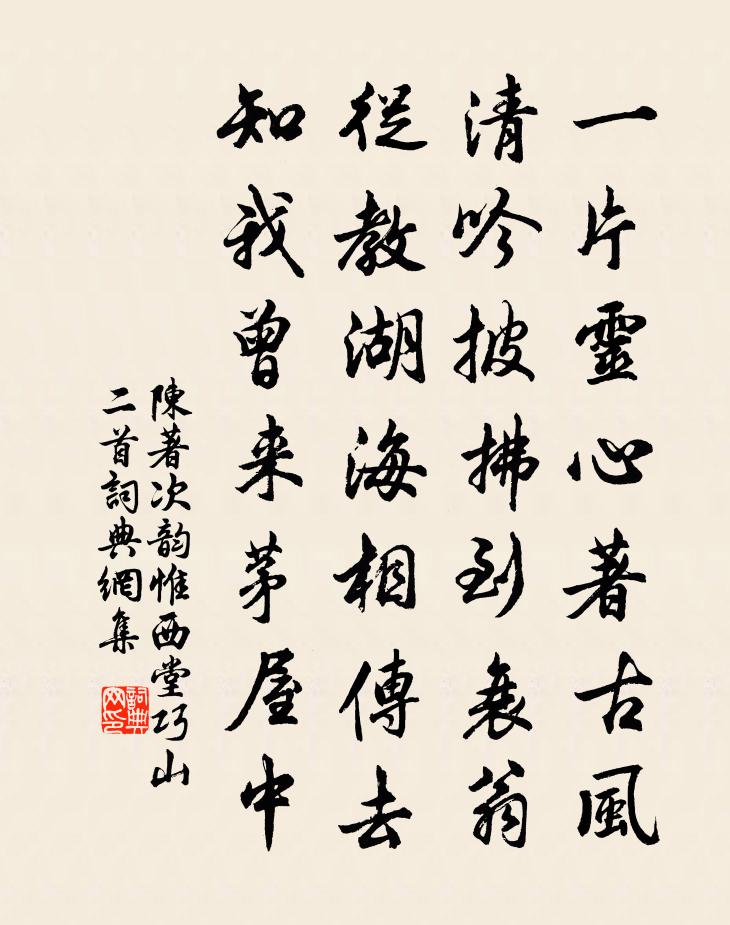 一片靈心著古風
清吟披拂到衰翁
從教湖海相傳去
知我曾来茅屋中
陳著次韵惟西堂巧山
二首詞典網集
詞典網印